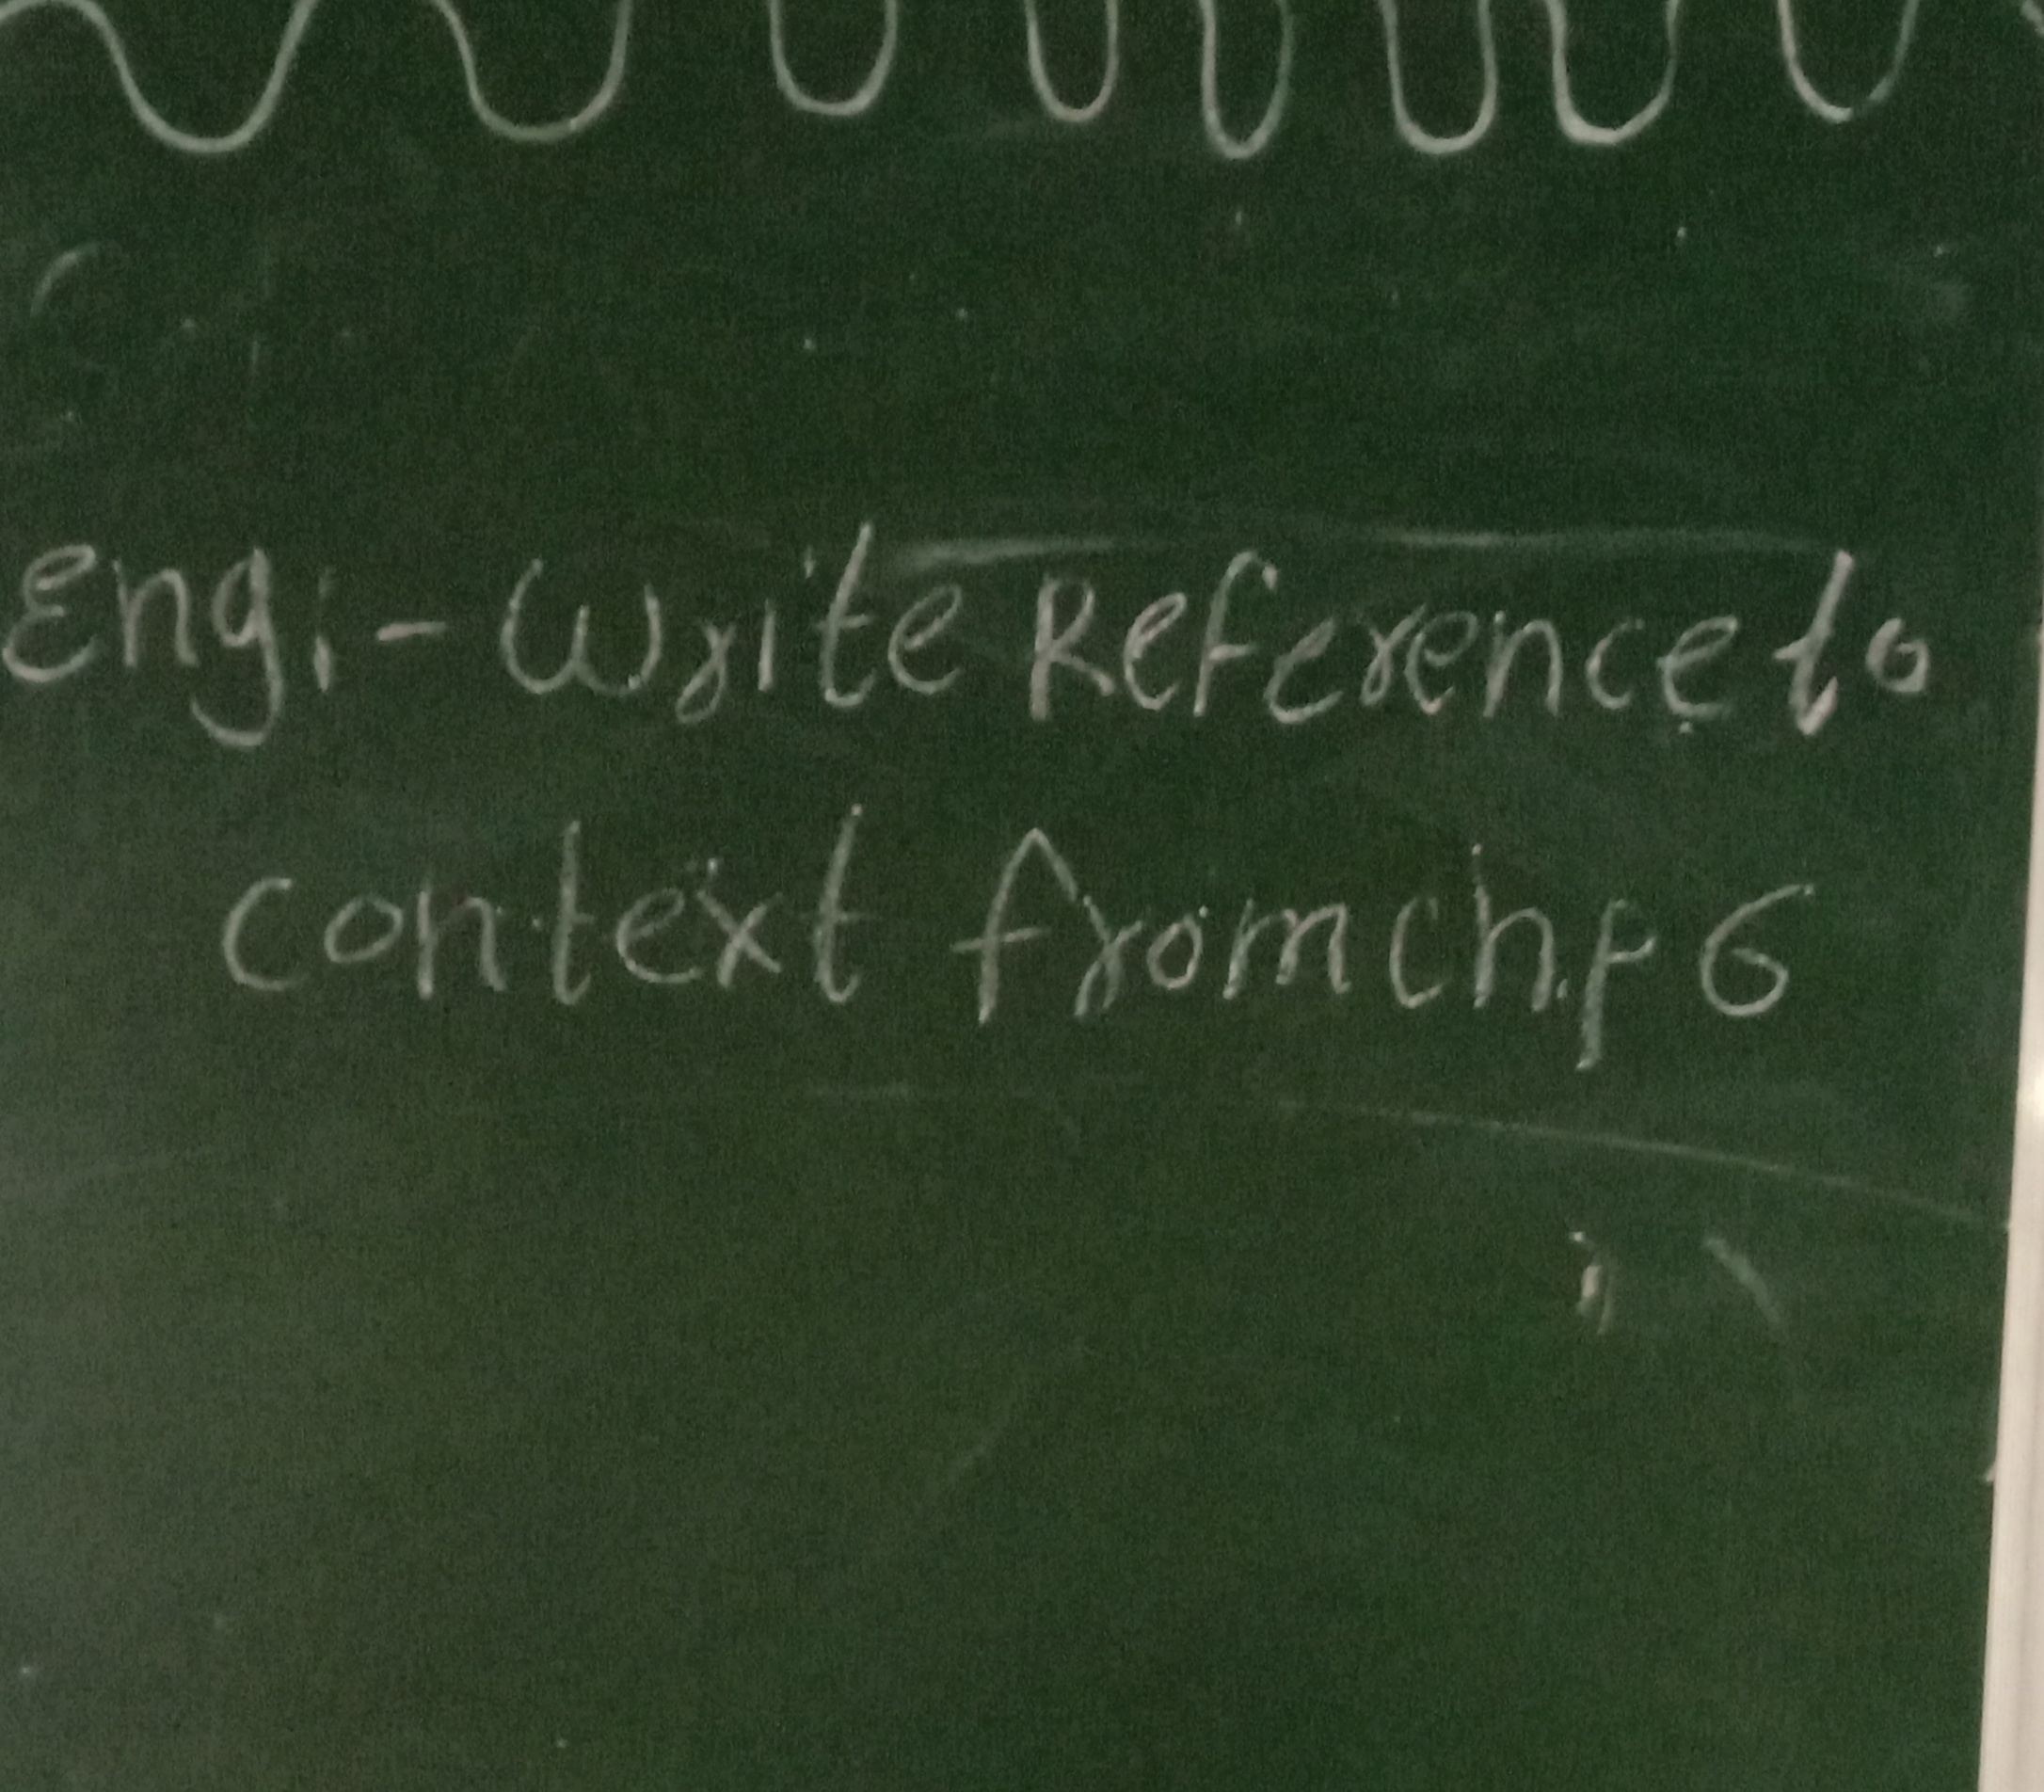 Eng:- Write Reference to
context from chp 6